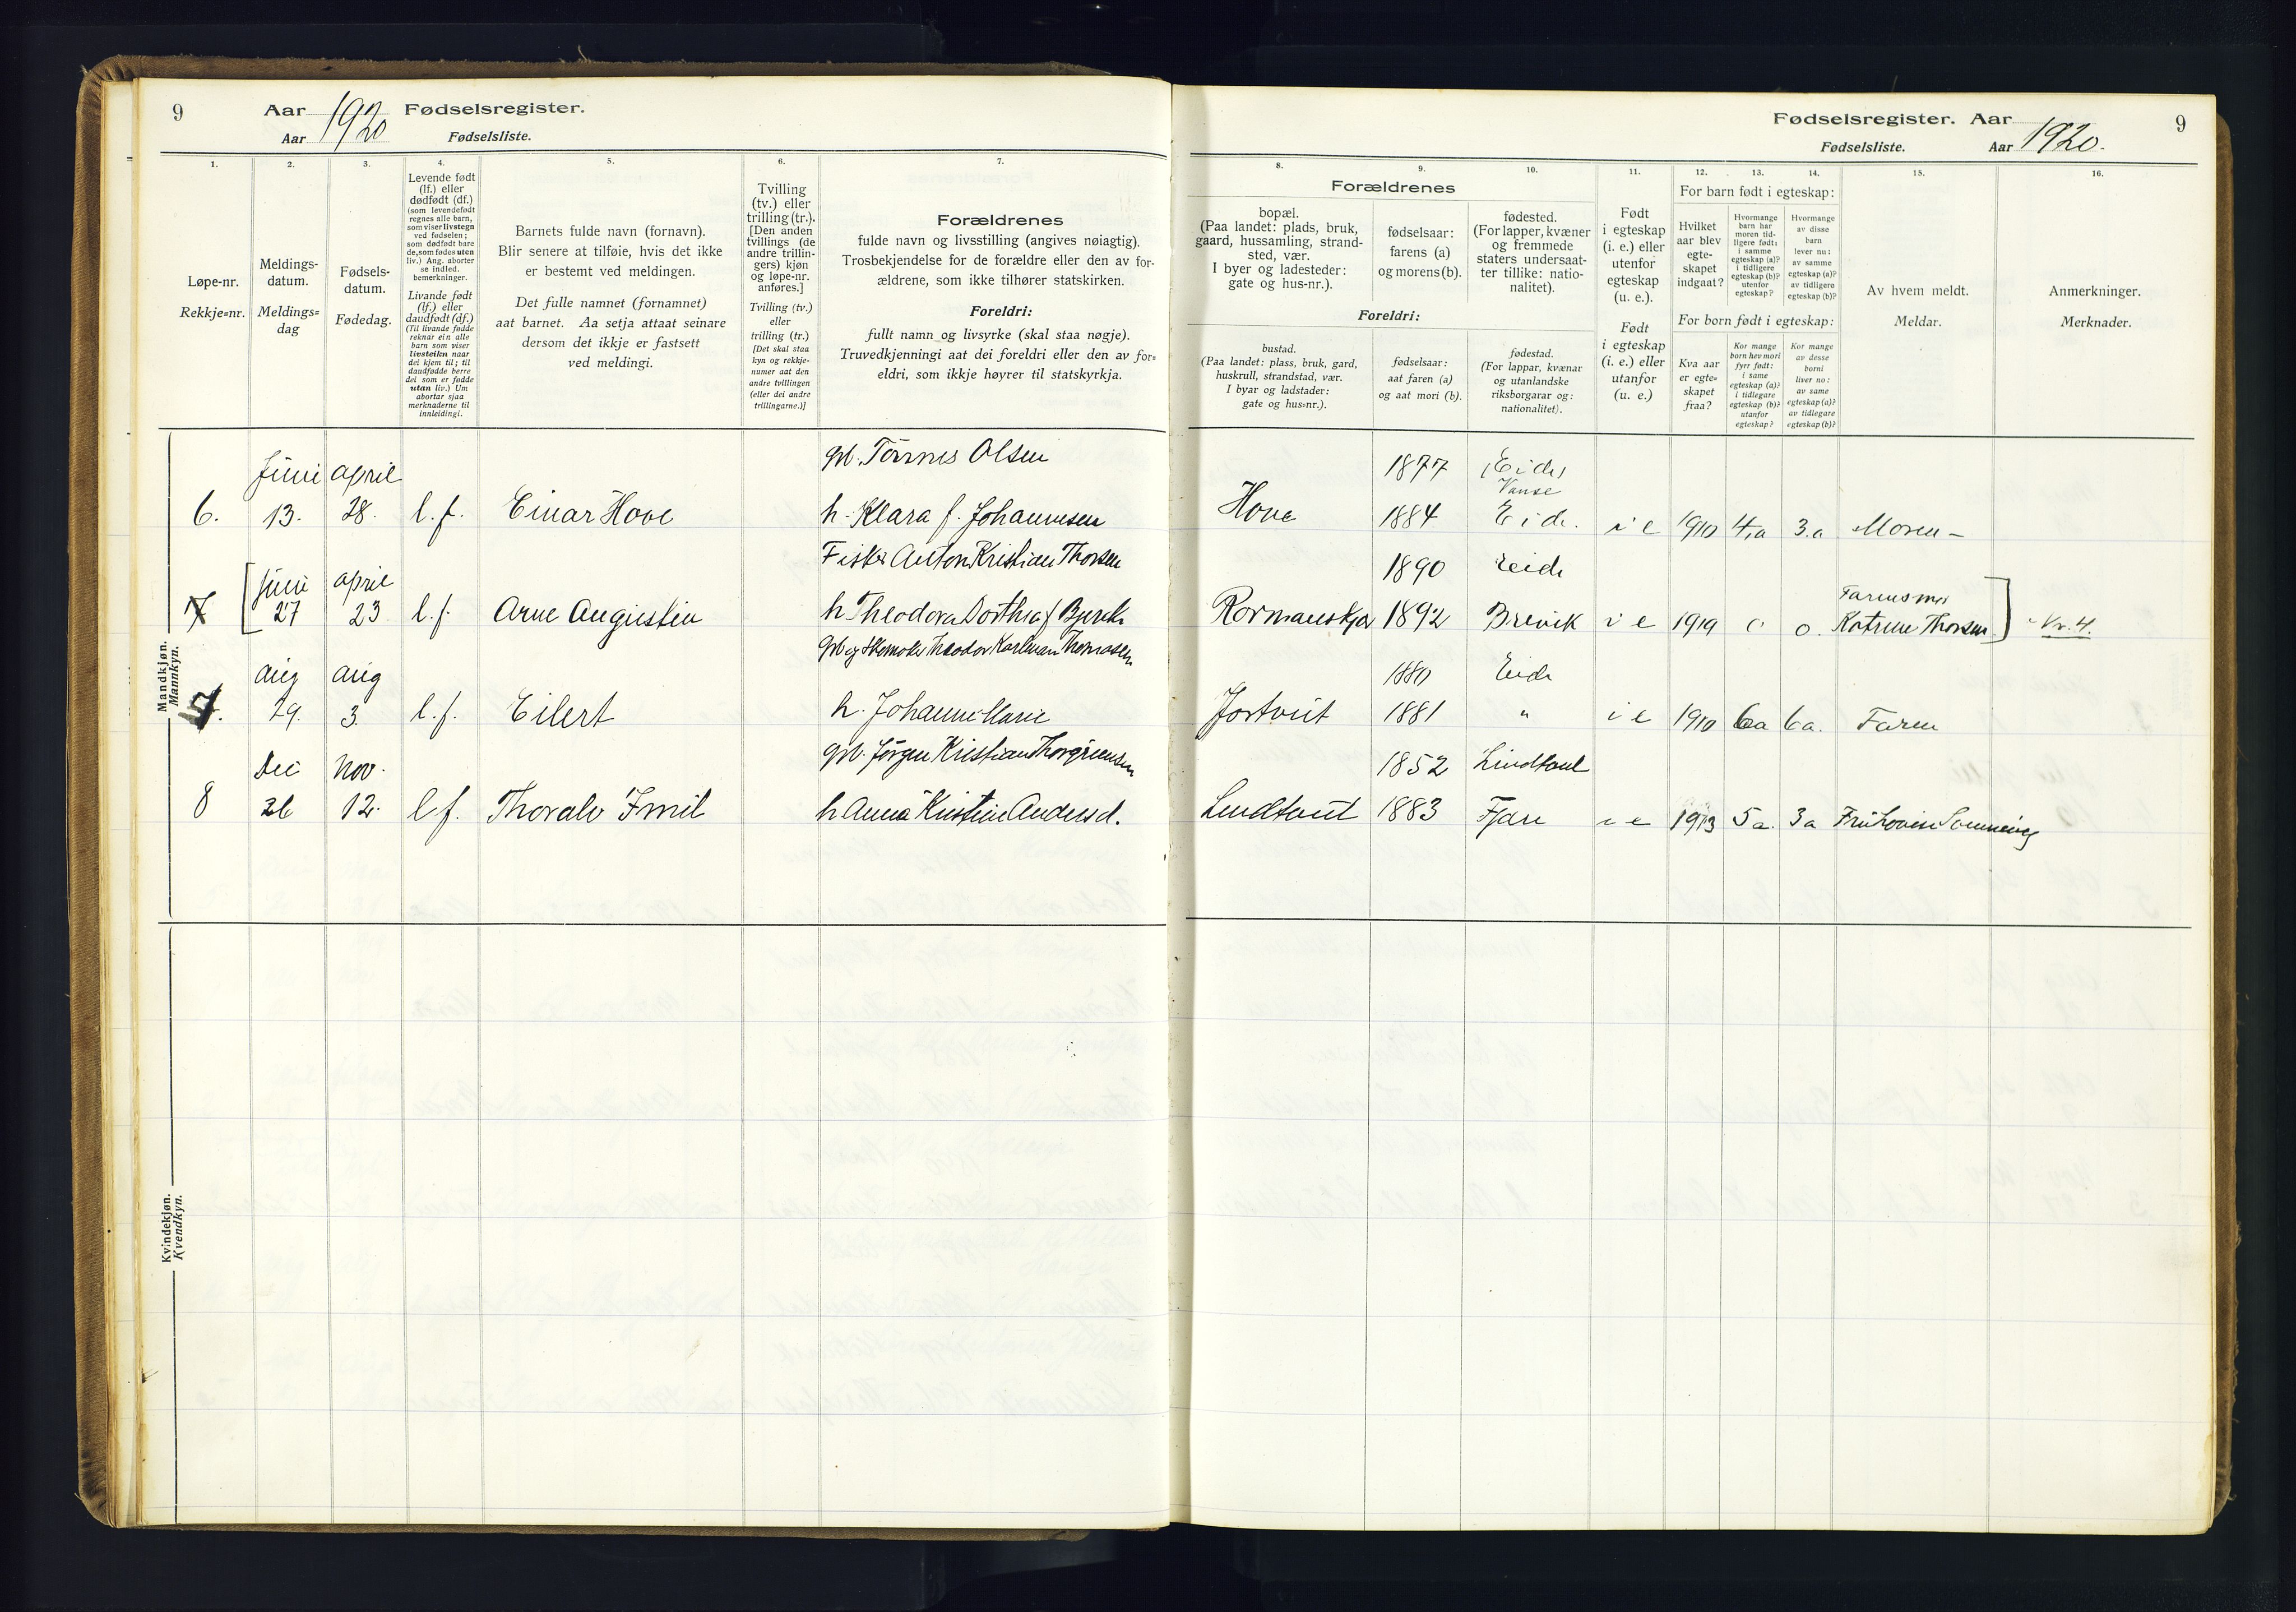 9
Aar 1920 Fødselsregister.
Aar Fødselsliste.
1.
2.
3.
4.
5.
6.
7.
Løpe-nr.
Rekkje=nr.
Meldings-
datum.
Meldings=
dag
Fødsels-
datum.
Fødedag.
Levende født
(lf.) eller
dødfødt (df.)
(som levendefødt
regnes alle barn,
som viser livstegn
ved fødselen;
som dødfødt bare
de, som fødes uten
liv.) Ang. aborter
se indled.
bemerkninger.
Livande født
(lf.) eller
daudfødt (df.)
(Til livande fødde
reknar ein alle
barn som viser
livsteikn naar
dei kjem til; til
daudfødde berre
dei som er fødde
utan liv.) Um
abortar sjaa
merknaderne til
innleidingi.
Barnets fulde navn (fornavn).
Blir senere at tilføie, hvis det ikke
er bestemt ved meldingen.
Det fulle namnet (fornamnet)
aat barnet. Aa setja attaat seinare
dersom det ikkje er fastsett
ved meldingi.
Tvilling
(tv.) eller
trilling (tr.).
[Den anden
tvillings (de
andre trillin-
gers) kjøn
og løpe-nr.
anføres.]
Tvilling (tv.)
eller
trilling (tr.)
[Det skal staa
kyn og rekkje-
numer aat den
andre tvillingen
(eller dei andre
trillingarne.)]
Forældrenes
fulde navn og livsstilling (angives nøiagtig).
Trosbekjendelse for de forældre eller den av for-
ældrene, som ikke tilhører statskirken.
Foreldri:
fullt namn og livsyrke (skal staa nøgje).
Truvedkjenningi aat dei foreldri eller den av for=
eldri, som ikkje høyrer til statskyrkja.
Fødselsregister. Aar 1920.
Fødselsliste. Aar
9
8.
9.
10.
11.
12.
13.
14.
15.
16.
Forældrenes
bopæl.
(Paa landet: plads, bruk,
gaard, hussamling, strand-
sted, vær.
I byer og ladesteder:
gate og hus-nr.).
fødselsaar:
farens (a)
og morens (b).
fødested.
(For lapper, kvæner
og fremmede
staters undersaat-
ter tillike: natio-
nalitet).
Foreldri:
bustad.
(Paa landet: plass, bruk, gard,
huskrull, strandstad, vær.
I byar og ladstader:
gate og hus=nr.).
fødselsaar:
aat faren (a)
og aat mori (b).
fødestad.
(For lappar, kvænar
og utanlandske
riksborgarar og:
nationalitet).
Født
i egteskap
(i. e.) eller
utenfor
egteskap
(u. e.).
Født
i egteskap
(i. e.) eller
utanfor
(u. e.)
For barn født i egteskap:
Hvilket
aar blev
egte-
skapet
indgaat?
Hvormange
barn har
moren tid-
ligere født:
i samme
egteskap (a)?
i tidligere
egteskap (b)?
utenfor
egteskap?
Hvormange
av disse
barn
lever nu:
av samme
egteskap (a)?
av tidligere
egteskap (b)?
For born født i egteskap:
Kva aar
er egte=
skapet
fraa?
Kor mange
born hev mori
fyrr født:
i same
egteskap (a)?
i tidlegare
egteskap (b)?
utanfor
egteskap?
Kor mange
av desse
borni
liver no:
av same
egteskap (a)?
av tidlegare
egteskap (b)?
Av hvem meldt.
Meldar.
Anmerkninger.
Merknader.
Mandkjøn.
Mannkyn.
Juni april gbr. Tønnes Olsen 1877 Eide, Vanse
6. 13. 28. l. f. Einar Hove h. Klara f. Johannesen Hove 1884 Eide. i e 1910 4.a 3.a Moren
Juni april Fisker Anton Kristian Thorsen 1890 Eide Farens mor
7 27 23 l. f. Arne Augustin h Theodora Dorthea f 1892 Brevik i e 1919 0 0. Katrine Thorsen Nr. 4.
aug aug gbr og Skomaker Theodor Karlman Thomasen 1880 Eide
7. 29. 3. l. f. Eilert h. Johanne Marie Jortveit 1881 " i e 1910 6a 6a. Faren
Dec Nov. gbr. Jørgen Kristian 1852 Lindtveit
8 26 12. l f. Thoralv Emil h Anna Kirstine Andersd. Lindtveit 1883 Fjære i e 1913 5 a. 3a Fru Lovise
Kvindekjøn.
Kvendkyn.